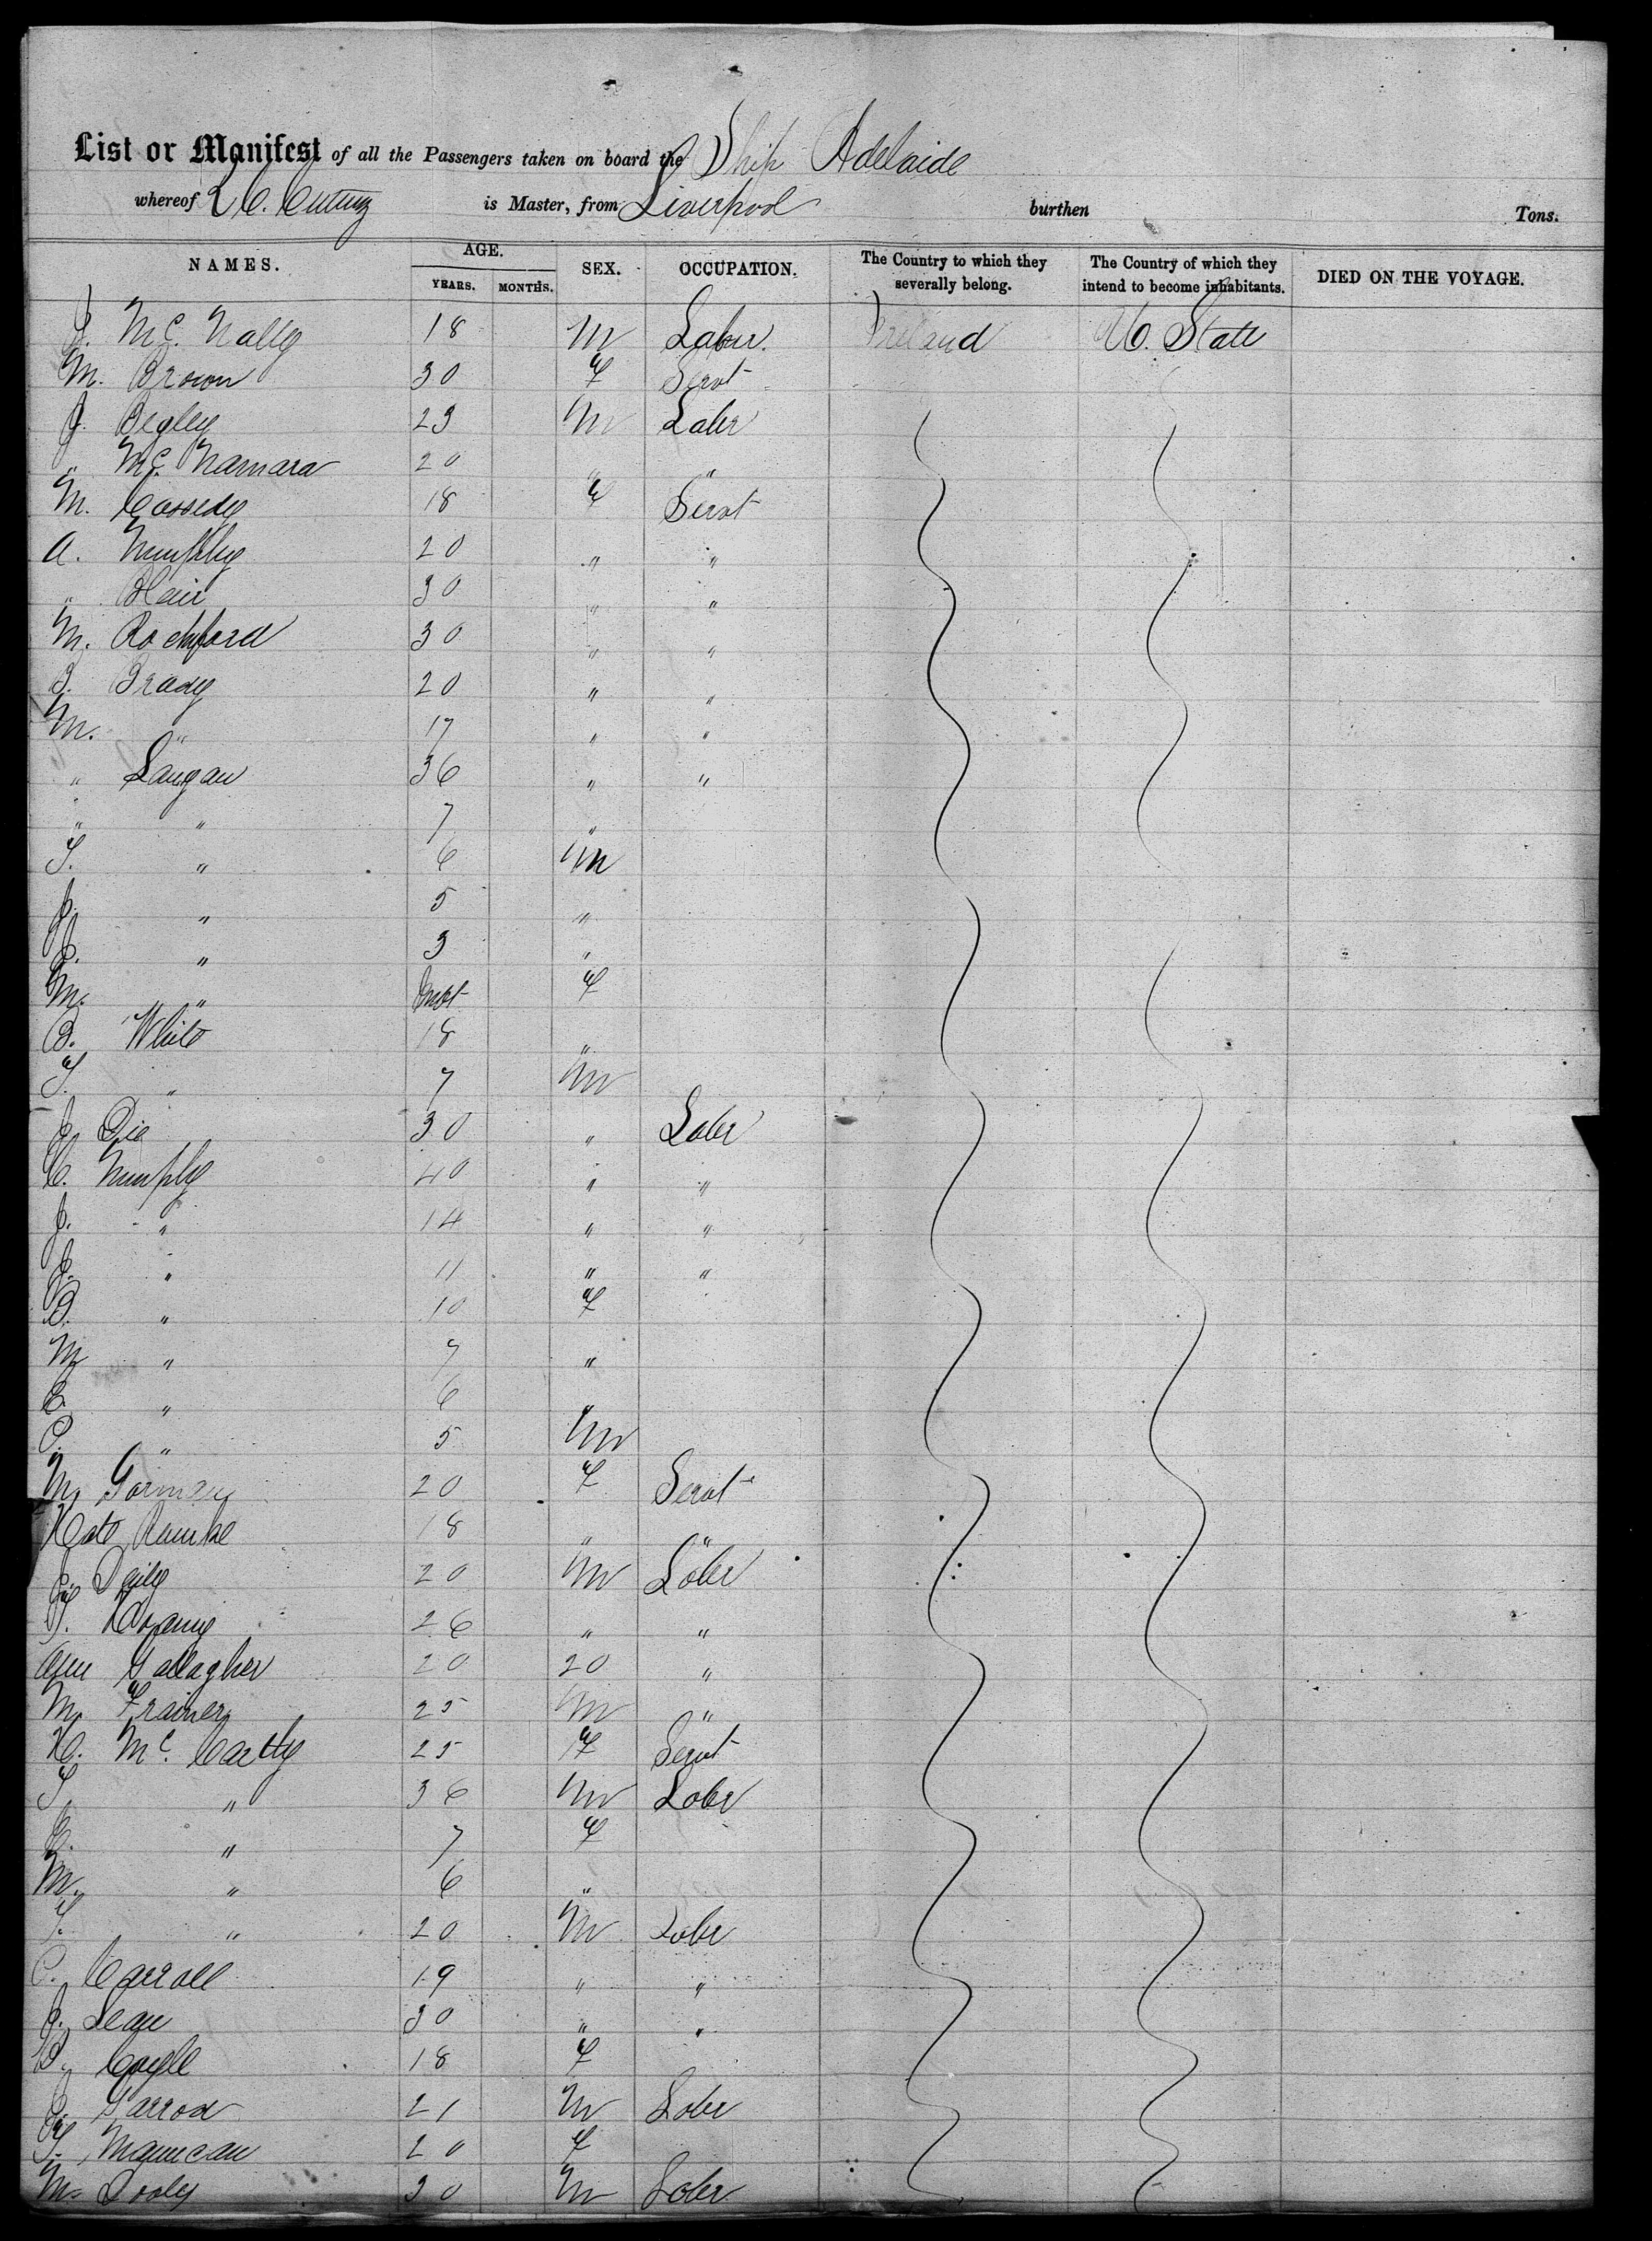 List or Manifest of all the Passengers taken on board the Ship Adelaide
whereof is Master, from Liverpool burthen Tons.
NAMES. AGE. SEX. OCCUPATION. The Country to which they severally belong. The Country of which they intend to become inhabitants. DIED ON THE VOYAGE.
YEARS. MONTHS.
J. McNally 18 M Labur. Ireland U. State
M. Brown 30 F Servt
J. Begley 23 M Labr
" McNamara 20 " "
M. Cassedy 18 F Servt
A. Murphy 20 " "
" Blair 30 " "
M. Rochford 30 " "
B. Brady 20 " "
M. " 17 " "
" Langan 36 " "
" " 7 "
T. " 6 M
J. " 5 "
" 3 "
M. " Infat F
B. White 18 "
T. " 7 M
J. 30 " Labr
C. Murphy 40 " "
J. " 14 " "
J. " 11 " "
B. " 10 F
M " 7 "
E. " 6 "
P. " 5 M
M. Gorman 20 F Servt
Kate 18 " "
J. Daily 20 M Labr
T. 26 " "
Ann Gallagher 20 20 "
M. Trainer 25 M "
H. McCartty 25 F Servt
T " 36 M Labr
" 7 F
M. " 6 "
T. " 20 M Labr
C. Carroll 19 " "
J. Lean 30 " "
B. Coyle 18 F
J. Garrod 21 M Labr
T. 20 F
M. Dooly 30 M Labr